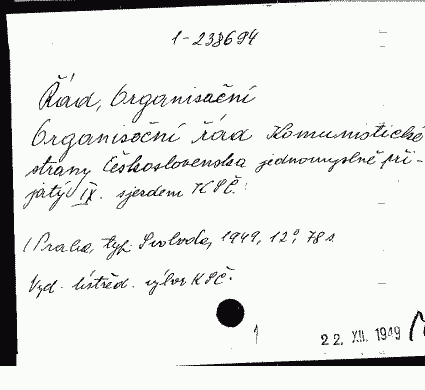 1-238694
Řád, Organisační
Organisační řád Komunistické
strany Československa jednomyslně při-
jatý IX. sjezdem KSČ.
(Praha, typ. Svoboda, 1949, 12°, 78 s.
Vyd. ústřed. výbor KSČ.
22. XII. 1949